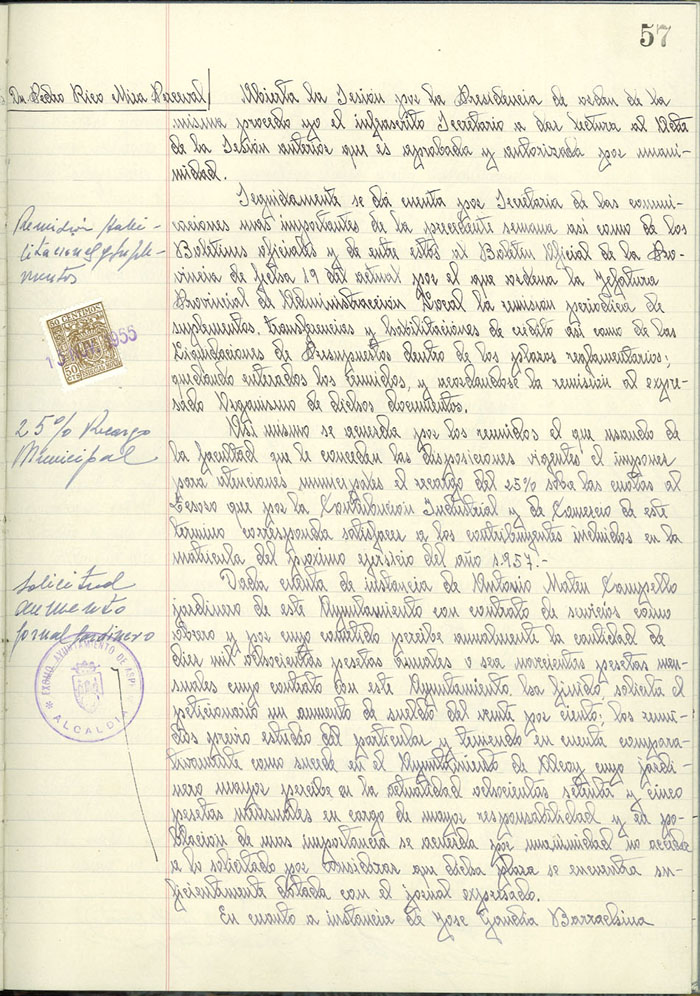 57
Dn. Pedro Rico Mira Perceval
Abierta la Sesión por la Presidencia de orden de la
misma procedo yo el infrascrito Secretario a dar lectura al Acta
de la Sesión anterior que es aprobada y autorizada por unani-
midad.
Seguidamente se dá cuenta por Secretaria de las comuni-
caciones mas importantes de la precedente semana asi como de los
Boletines oficiales y de entre estos al Boletin Oficial de la Pro-
vincia de fecha 19 del actual por el que ordena la Jefatura
Provincial de Administracción Local la remision periodica de
suplementos, transferencias y habilitaciones de credito asi como de las
Liquidaciones de Presupuestos dentro de los plazos reglamentarios;
quedando enterados los reunidos, y acordandose la remisión al expre-
sado Organismo de dichos documentos.
Asi mismo se acuerda por los reunidos el que usando de
la facultad que le conceden las disposiciones vigentes el imponer
para atenciones municipales el recargo del 25% sobre las cuotas al
Tesoro que por la Contribución Industrial y de Comercio de este
termino corresponda satisfacer a los contribuyentes incluidos en la
matricula del proximo ejercicio del año 1.957.-
Dada cuenta de instancia de Antonio Mateu Campello
jardinero de este Ayuntamiento con contrato de servicios como
obrero y por cuyo cometido percibe anualmente la cantidad de
diez mil ochocientas pesetas anuales o sea novecientas pesetas men-
suales cuyo contrato con este Ayuntamiento ha finido, solicita el
peticionario un aumento de sueldo del veinte por ciento; los reuni-
dos previo estudio del particular y teniendo en cuenta compara-
tivamente como sucede en el Ayuntamiento de Alcoy cuyo jardi-
nero mayor percibe en la actualidad ochocientas setenta y cinco
pesetas mensuales en cargo de mayor responsabilidad y en po-
blacion de mas importancia se acuerda por unanimidad no acceder
a lo solicitado por considerar que dicha plaza se encuentra su-
ficientemente dotada con el jornal expresado.
En cuanto a instancia de Jose Gandia Barrachina
Remisión Habi-
litaciones y suple-
mentos
50 CENTIMOS
1955
50
25% Recargo
Municipal
Solicitud
aumento
jornal Jardinero
EXCMO. AYUNTAMIENTO DE ASPE
ALCALDIA